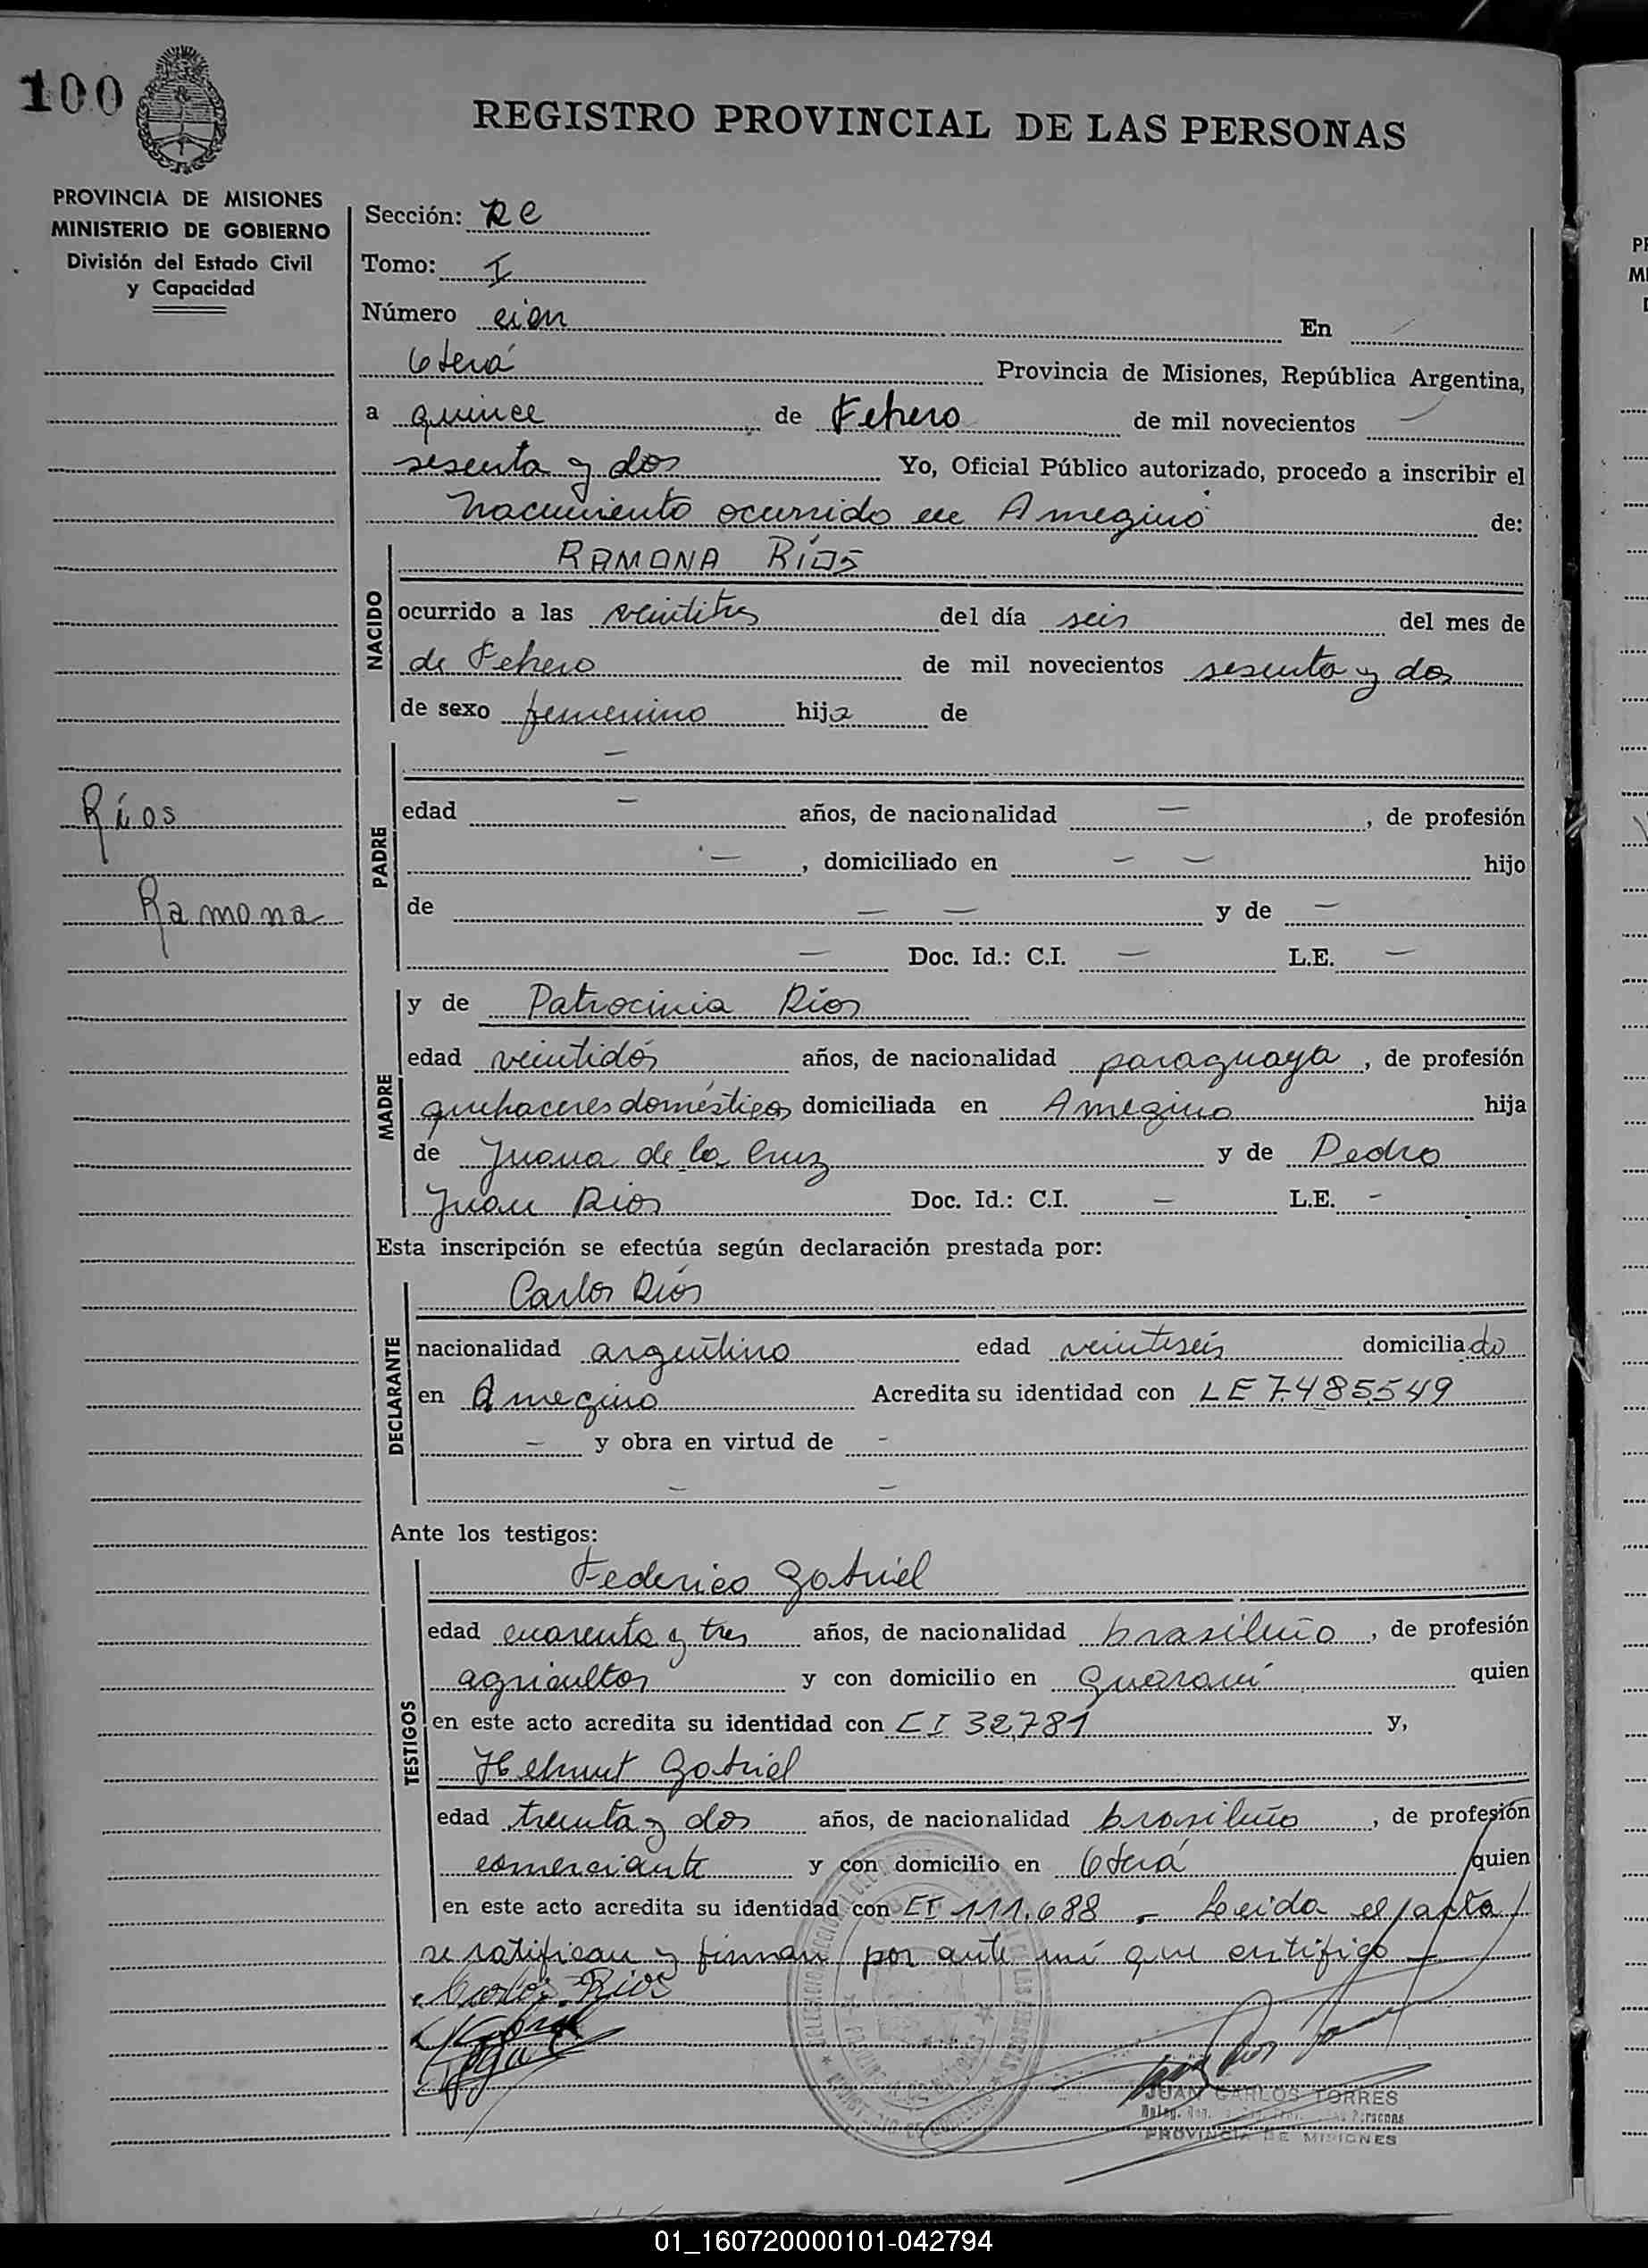 100
REGISTRO PROVINCIAL DE LAS PERSONAS
PROVINCIA DE MISIONES
MINISTERIO DE GOBIERNO
División del Estado Civil
y Capacidad
Ríos
Ramona
Sección: RC
Tomo: I
Número cien En
Oberá Provincia de Misiones, República Argentina,
a quince de Febrero de mil novecientos
sesenta y dos Yo, Oficial Público autorizado, procedo a inscribir el
nacimiento ocurrido en Amegino de:
NACIDO
RAMONA RÍOS
ocurrido a las veintitres del día seis del mes de
de Febrero de mil novecientos sesenta y dos
de sexo femenino hija de
PADRE
—
edad — años, de nacionalidad — , de profesión
— , domiciliado en — — hijo
de — — y de —
— Doc. Id.: C.I. — L.E. —
MADRE
y de Patrocinia Ríos
edad veintidós años, de nacionalidad paraguaya , de profesión
quehaceres domésticos domiciliada en Amegino hija
de Juana de la Cruz y de Pedro
Juan Rios Doc. Id.: C.I. — L.E. -
Esta inscripción se efectúa según declaración prestada por:
DECLARANTE
Carlos Ríos
nacionalidad argentino edad veintiseis domiciliado
en Amegino Acredita su identidad con LE 7.485.549
— y obra en virtud de -
— —
Ante los testigos:
TESTIGOS
Federico Gabriel
edad cuarenta y tres años, de nacionalidad brasileño , de profesión
agricultor y con domicilio en Guaraní quien
en este acto acredita su identidad con CI 32.781 y,
Helmut Gabriel
edad treinta y dos años, de nacionalidad brasileño , de profesión
comerciante y con domicilio en Oberá quien
en este acto acredita su identidad con CI 111.688 - Leída el acta
se ratifican y firman por ante mí que certifico —
Carlos Rios
JUAN CARLOS TORRES
PROVINCIA DE MISIONES
01_160720000101-042794